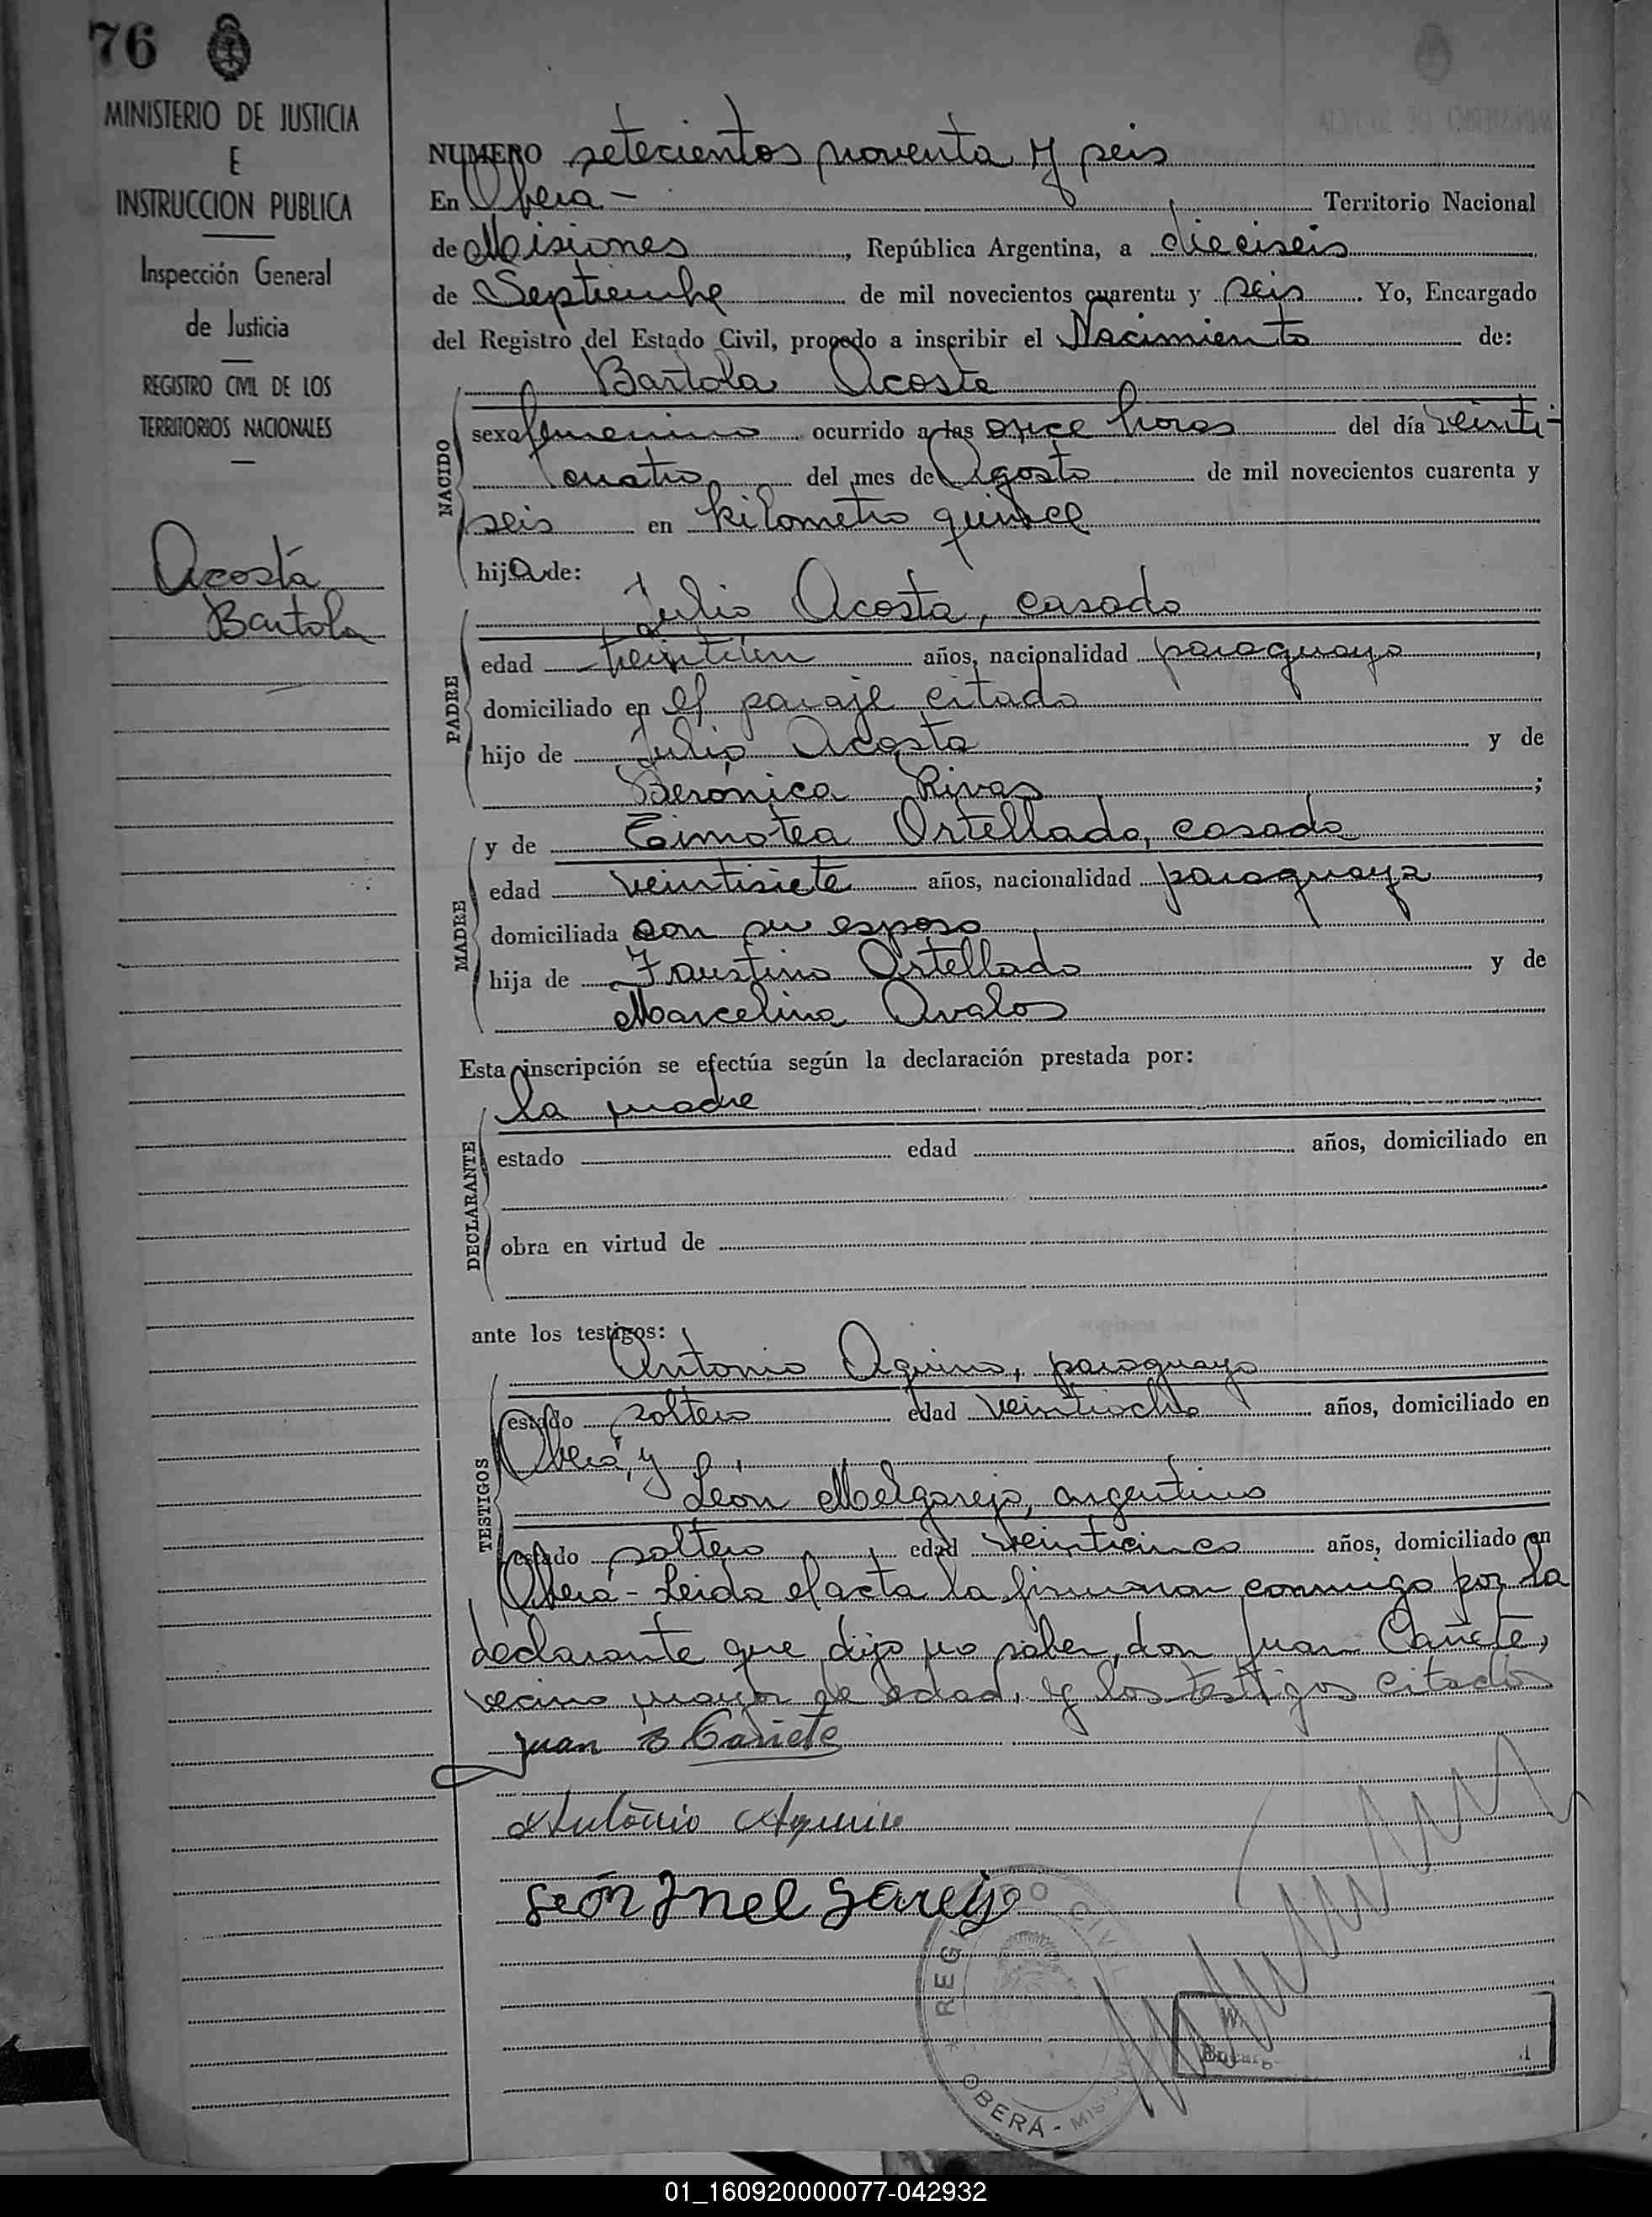 76
MINISTERIO DE JUSTICIA
E
INSTRUCCION PUBLICA
Inspección General
de Justicia
REGISTRO CIVIL DE LOS
TERRITORIOS NACIONALES
Acosta
Bartola
NUMERO setecientos noventa y seis
En Oberá - Territorio Nacional
de Misiones, República Argentina, a dieciseis
de Septiembre de mil novecientos cuarenta y seis. Yo, Encargado
del Registro del Estado Civil, procedo a inscribir el Nacimiento de:
Bartola Acosta
NACIDO
sexo femenino ocurrido a las once horas del día veinti-
cuatro del mes de Agosto de mil novecientos cuarenta y
seis en kilometro quince
hija de:
PADRE
Julio Acosta, casado
edad años, nacionalidad paraguayo,
domiciliado en el paraje citado
hijo de Julio Acosta y de
Berónica Rivas;
MADRE
y de Timotea Ortellado, casada
edad veintisiete años, nacionalidad paraguaya,
domiciliada con su esposo
hija de Faustino Ortellado y de
Marcelina Avalos
Esta inscripción se efectúa según la declaración prestada por:
DECLARANTE
la madre
estado edad años, domiciliado en
obra en virtud de
ante los testigos:
TESTIGOS
Antonio Aquino, paraguayo
estado soltero edad veintiocho años, domiciliado en
Oberá, y
León Melgarejo, argentino
estado soltero edad veinticinco años, domiciliado en
Oberá - Leida el acta la firmaron conmigo por la
declarante que dijo no saber, don Juan Cañete,
vecino mayor de edad, y los testigos citados
Juan B Cañete
Antonio Aquino
León Melgarejo
REGISTRO CIVIL
OBERÁ - MISIONES
01_160920000077-042932